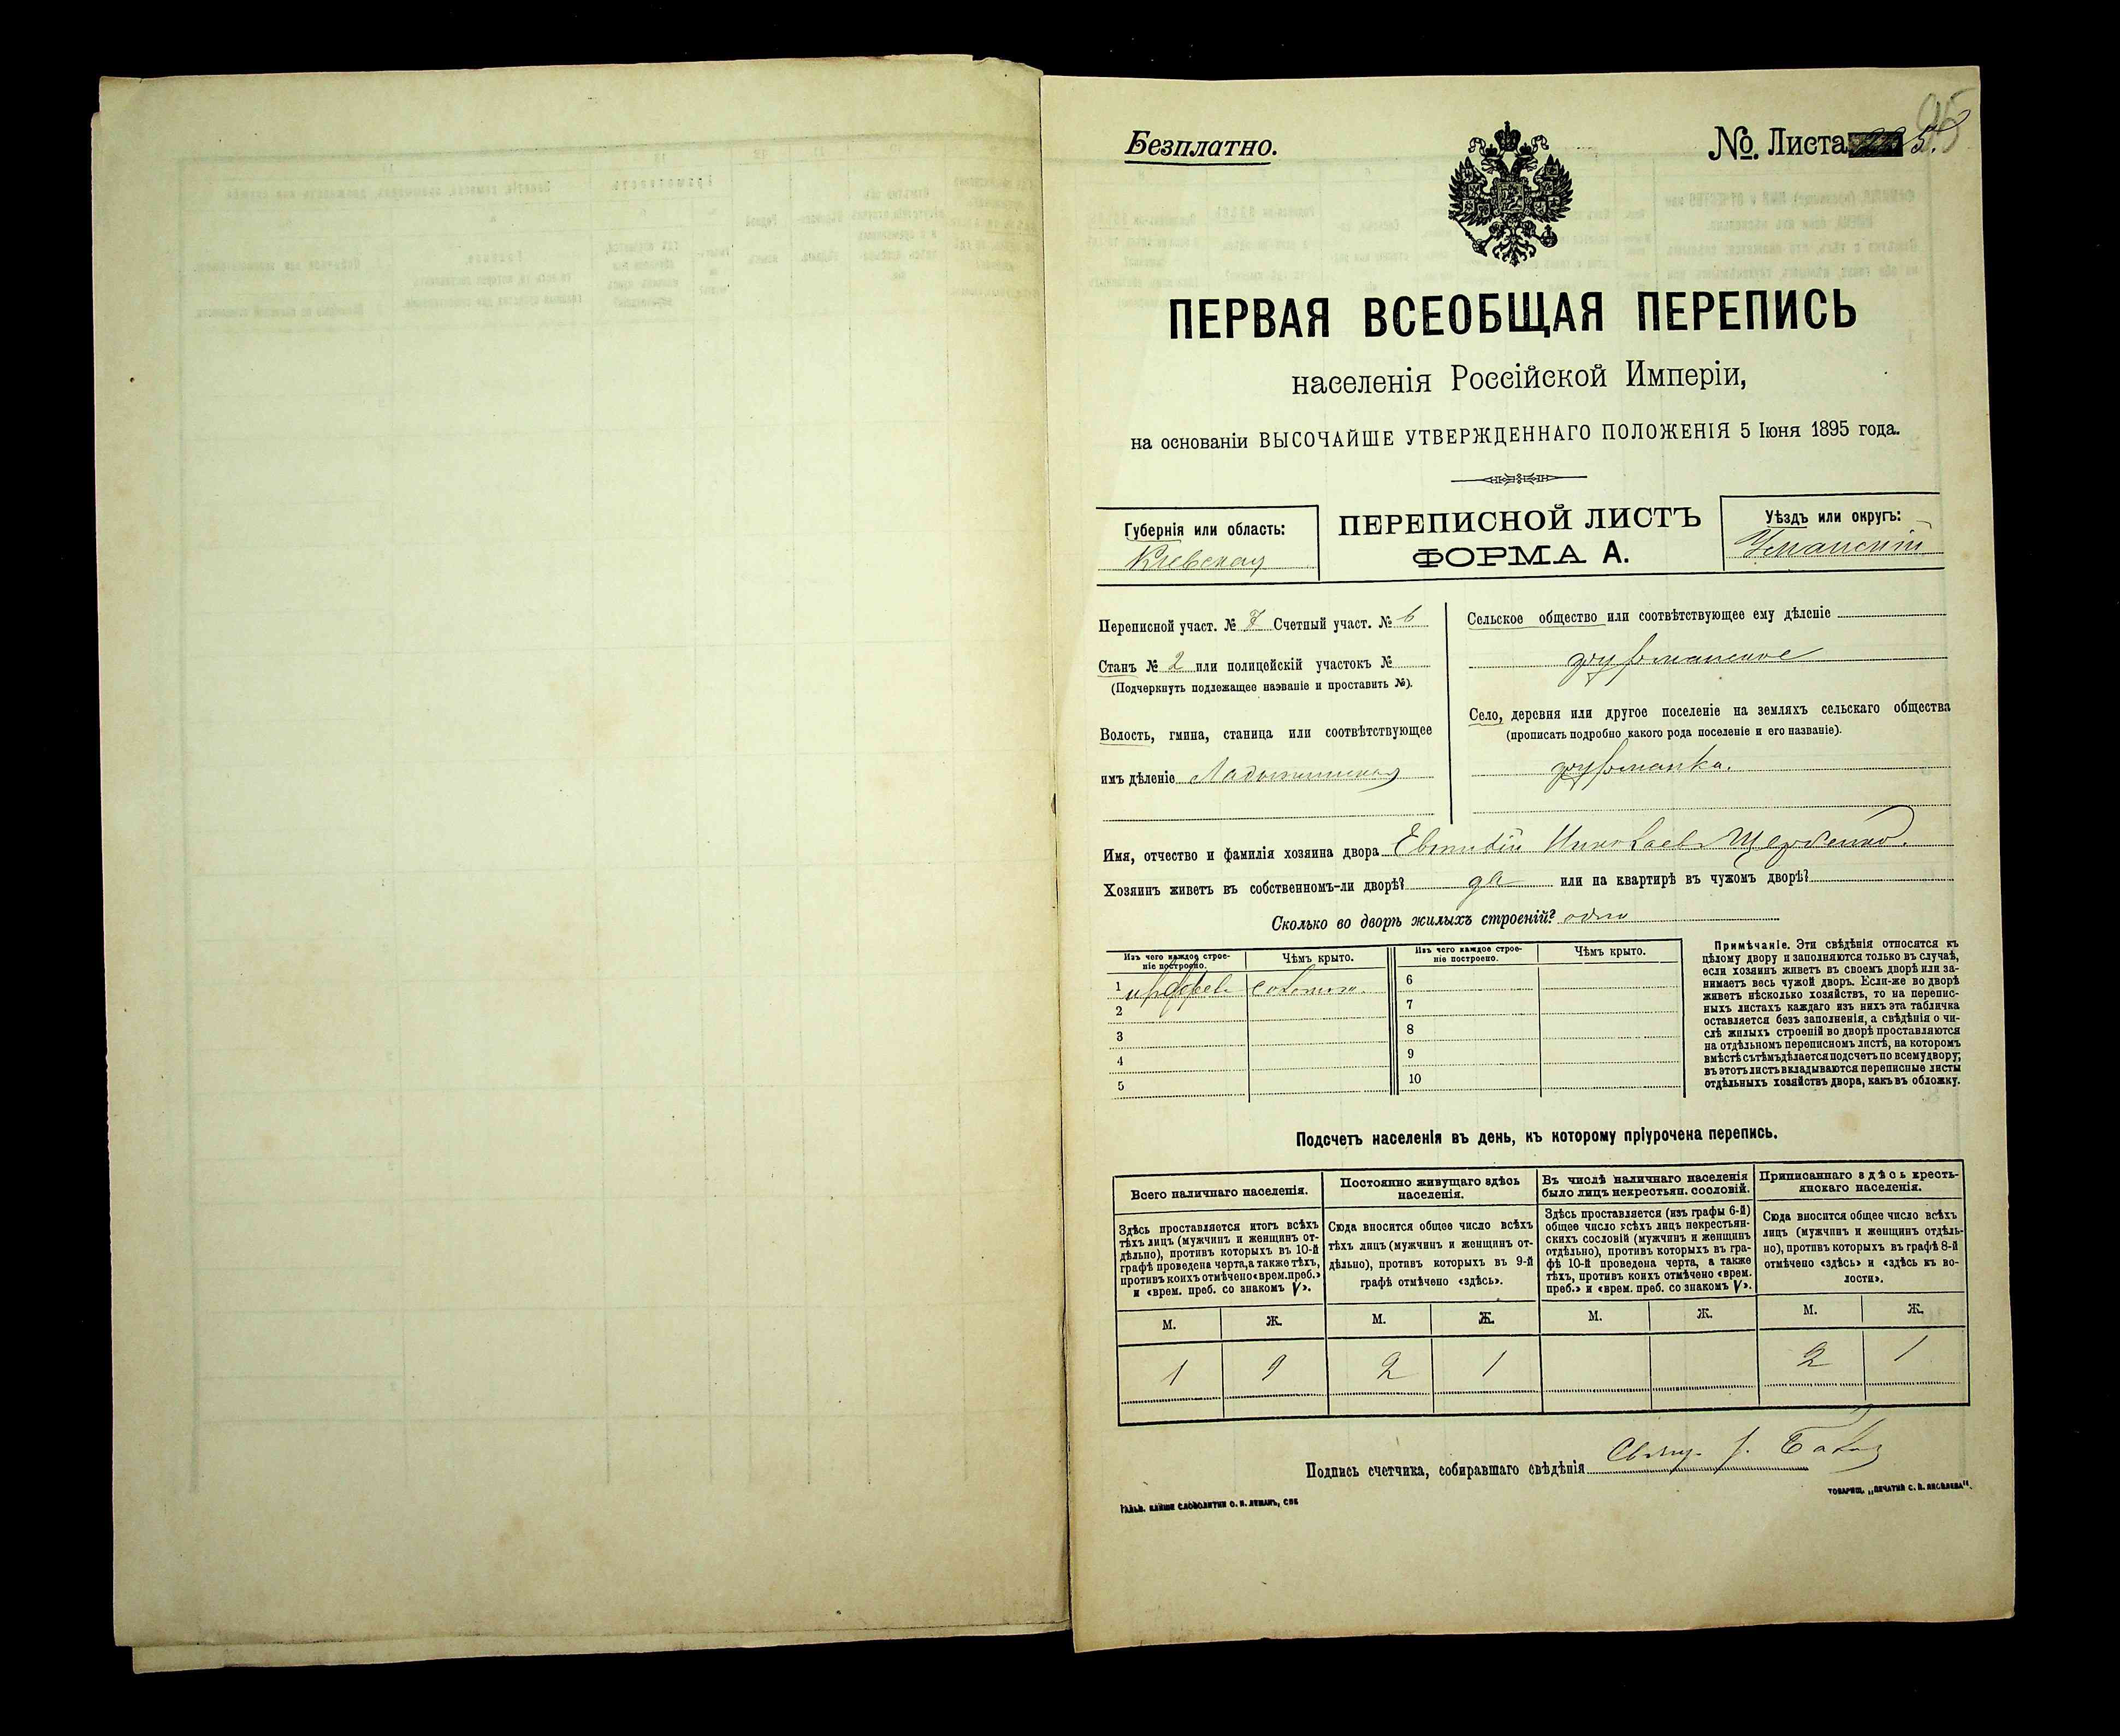 Безплатно.
No. Листа 5.
95
ПЕРВАЯ ВСЕОБЩАЯ ПЕРЕПИСЬ
населенія Россійской Имперіи,
на основаніи ВЫСОЧАЙШЕ УТВЕРЖДЕННАГО ПОЛОЖЕНІЯ 5 Іюня 1895 года.
Губернія или область:
Кіевская
ПЕРЕПИСНОЙ ЛИСТЪ
ФОРМА А.
Уѣздъ или округъ:
Уманскій
Переписной участ. № 7 Счетный участ. № 6
Станъ № 2 или полицейскій участокъ №
(Подчеркнуть подлежащее названіе и проставить №).
Волость, гмина, станица или соотвѣтствующее
имъ дѣленіе Ладыжинская
Сельское общество или соотвѣтствующее ему дѣленіе
фурманское
Село, деревня или другое поселеніе на земляхъ сельскаго общества
(прописать подробно какого рода поселеніе и его названіе).
фурманка.
Имя, отчество и фамилія хозяина двора Евтихій Николаевъ
Хозяинъ живетъ въ собственномъ-ли дворѣ? да или на квартирѣ въ чужомъ дворѣ?
Сколько во дворѣ жилыхъ строеній? одно
Изъ чего каждое строе-
ніе построено.
Чѣмъ крыто.
Изъ чего каждое строе-
ніе построено.
Чѣмъ крыто.
1 соломою. 6
2 7
3 8
4 9
5 10
Примѣчаніе. Эти свѣдѣнія относятся къ
цѣлому двору и заполняются только въ случаѣ,
если хозяинъ живетъ въ своемъ дворѣ или за-
нимаетъ весь чужой дворъ. Если-же во дворѣ
живетъ нѣсколько хозяйствъ, то на перепис-
ныхъ листахъ каждаго изъ нихъ эта табличка
оставляется безъ заполненія, а свѣдѣнія о чи-
слѣ жилыхъ строеній во дворѣ проставляются
на отдѣльномъ переписномъ листѣ, на которомъ
вмѣстѣ съ тѣмъ дѣлается подсчетъ по всему двору;
въ этотъ листъ вкладываются переписные листы
отдѣльныхъ хозяйствъ двора, какъ въ обложку.
Подсчетъ населенія въ день, къ которому пріурочена перепись.
Всего наличнаго населенія.
Здѣсь проставляется итогъ всѣхъ
тѣхъ лицъ (мужчинъ и женщинъ от-
дѣльно), противъ которыхъ въ 10-й
графѣ проведена черта, а также тѣхъ,
противъ коихъ отмѣчено «врем. преб.»
и «врем. преб. со знакомъ V».
Постоянно живущаго здѣсь
населенія.
Сюда вносится общее число всѣхъ
тѣхъ лицъ (мужчинъ и женщинъ от-
дѣльно), противъ которыхъ въ 9-й
графѣ отмѣчено «здѣсь».
Въ числѣ наличнаго населенія
было лицъ некрестьян. сословій.
Здѣсь проставляется (изъ графы 6-й)
общее число всѣхъ лицъ некрестьян-
скихъ сословій (мужчинъ и женщинъ
отдѣльно), противъ которыхъ въ гра-
фѣ 10-й проведена черта, а также
тѣхъ, противъ коихъ отмѣчено «врем.
преб.» и «врем. преб. со знакомъ V».
Приписаннаго здѣсь кресть-
янскаго населенія.
Сюда вносится общее число всѣхъ
лицъ (мужчинъ и женщинъ отдѣль-
но), противъ которыхъ въ графѣ 8-й
отмѣчено «здѣсь» и «здѣсь къ во-
лости».
М. Ж. М. Ж. М. Ж. М. Ж.
1 2 1 2 1
Подпись счетчика, собиравшаго свѣдѣнія
ТОВАРИЩ. „ПЕЧАТНЯ С. П. ЯКОВЛЕВА".